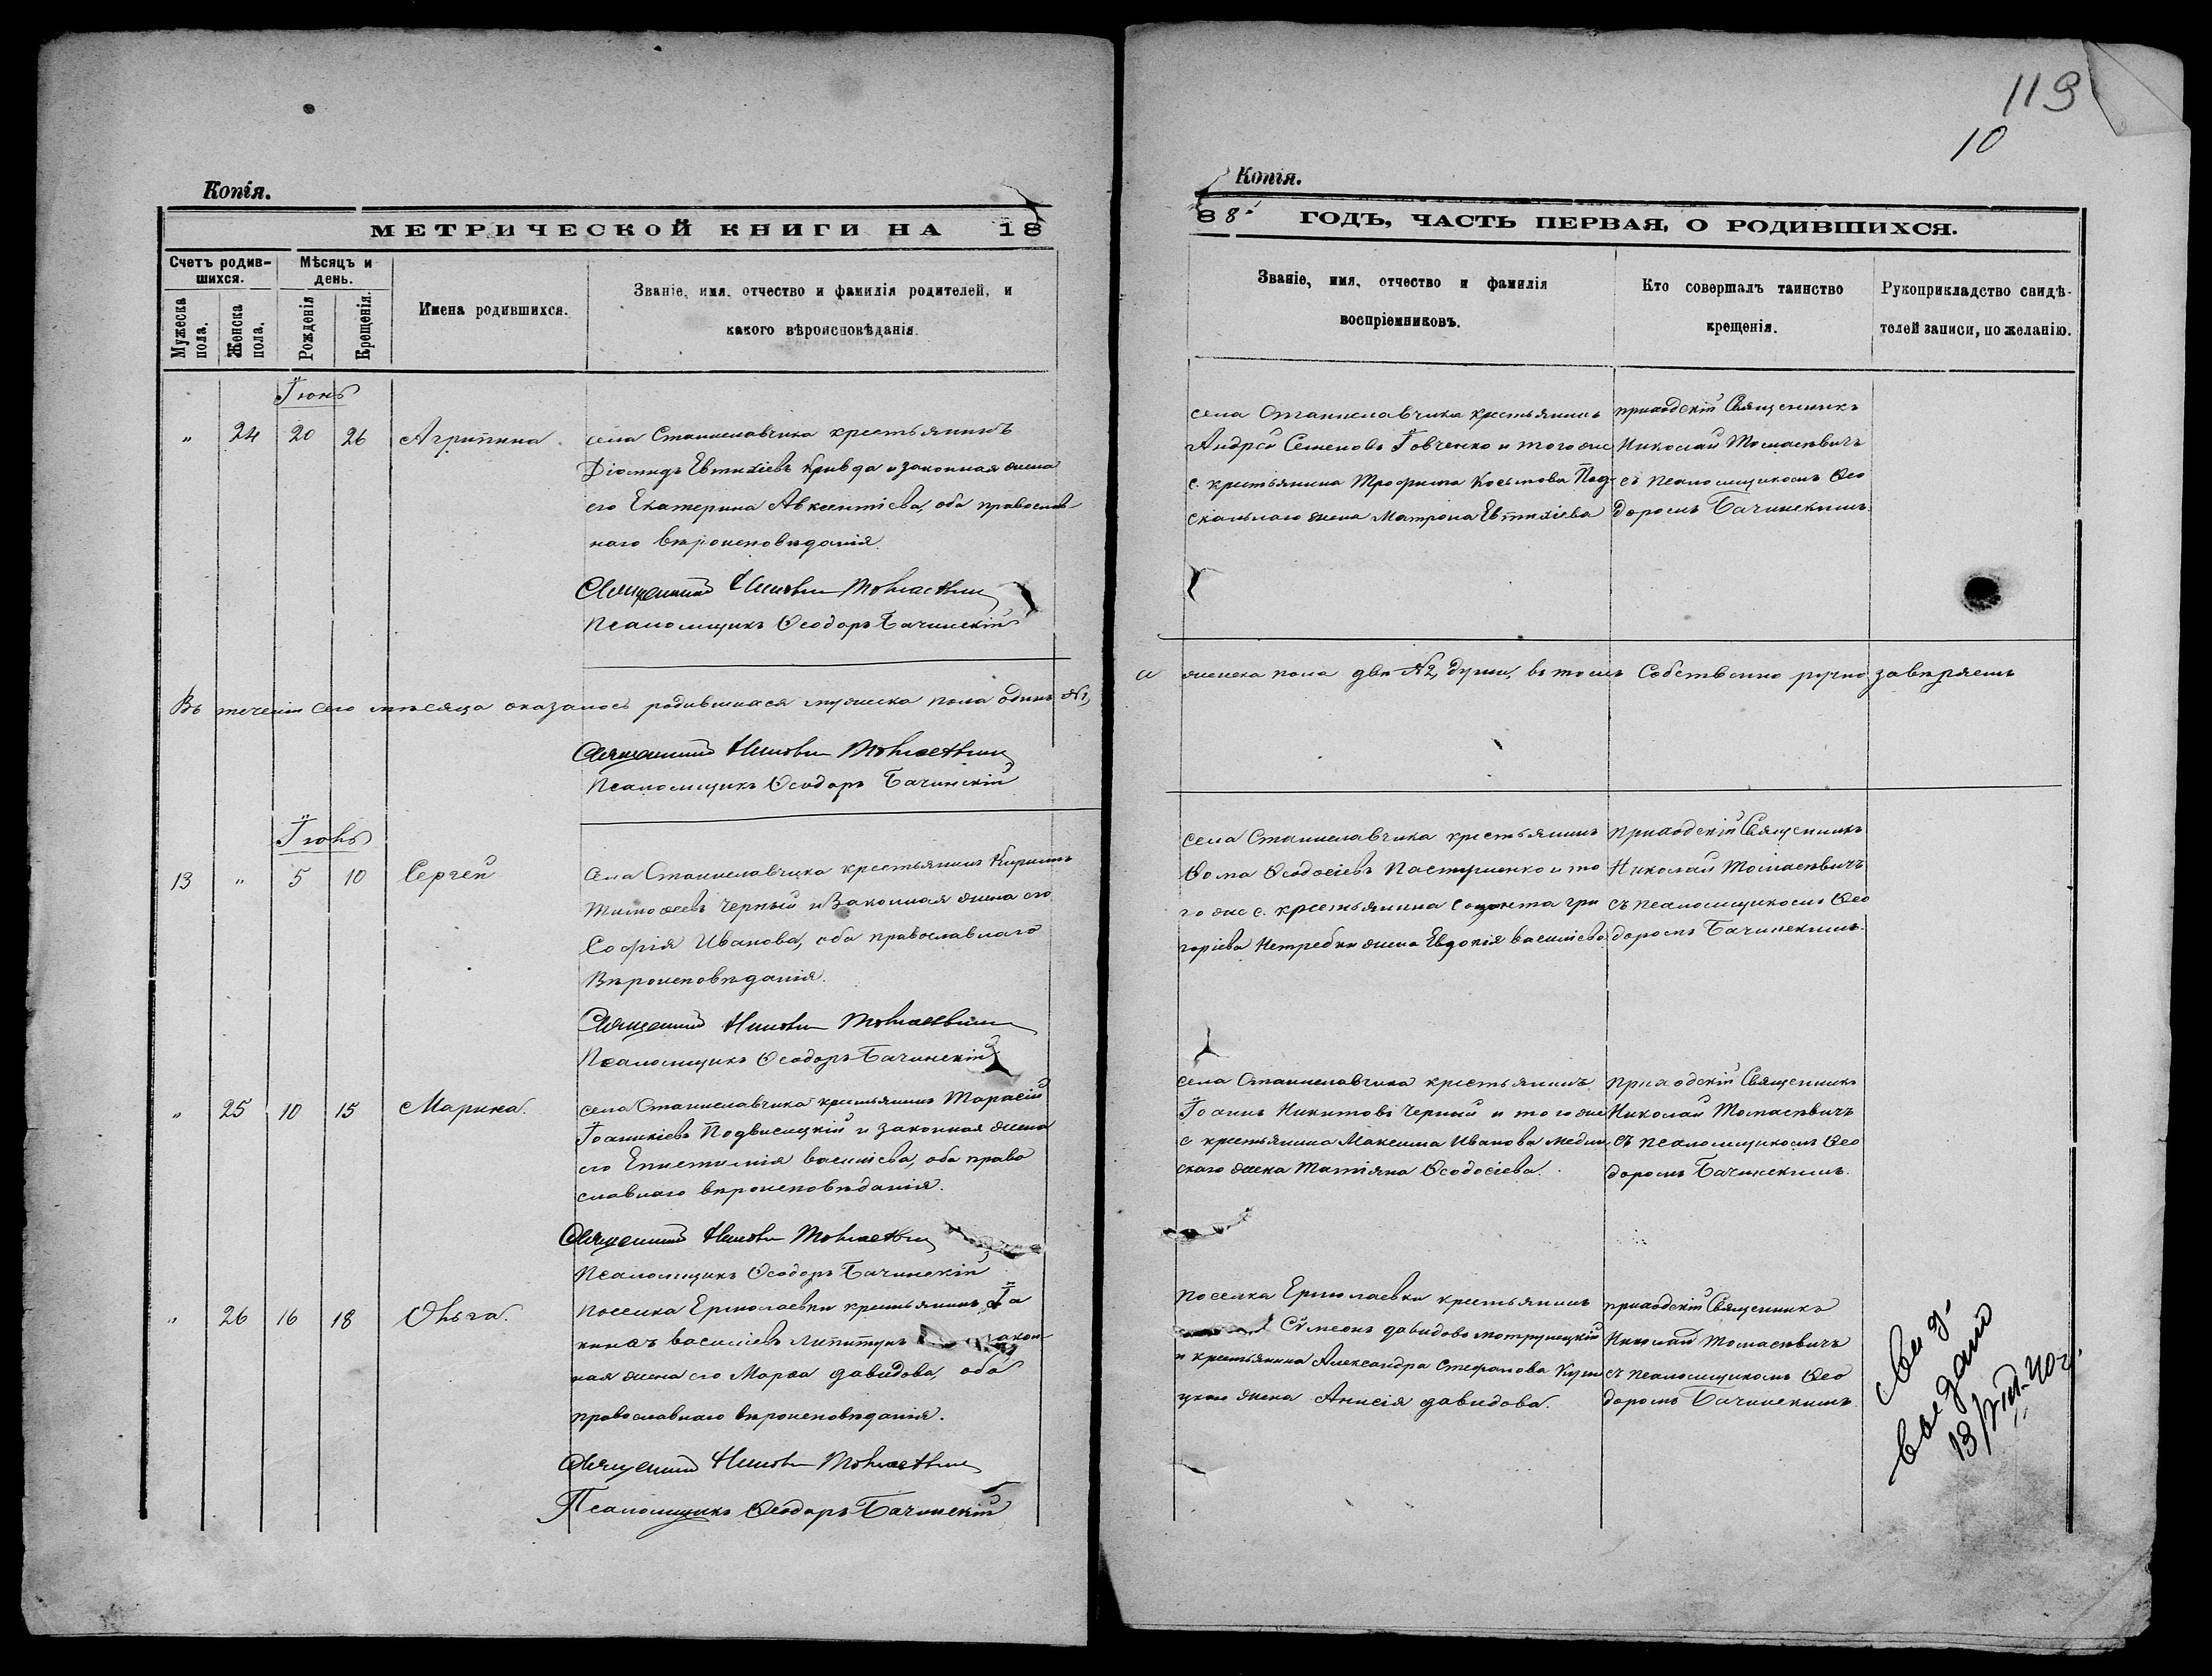 119
10
Копія.
МЕТРИЧЕСКОЙ КНИГИ НА 18
Счетъ родившихся.
Мѣсяцъ и день.
Мужеска пола.
Женска пола.
Рожденія
Крещенія.
Имена родившихся.
Званіе, имя, отчество и фамилія родителей, и
какого вѣроисповѣданія.
Іюнь
" 24 20 26 Агрипина
села Станиславчика крестьянинъ
Діомидъ Евтихіевъ Кривда и законная жена
его Екатерина Авксентіева, оба православ-
наго вѣроисповѣданія.
Священникъ Николай Томасевичъ
Псаломщикъ Ѳеодоръ Бачинскій
Въ теченіи сего мѣсяца оказалось родившихся мужеска пола одинъ №1,
Священникъ Николай Томасевичъ
Псаломщикъ Ѳеодоръ Бачинскій
Іюль
13 " 5 10 Сергей
Села Станиславчика крестьянинъ Кирилъ
Тимоѳеевъ Черный и Законная жена его
Софія Иванова, оба православнаго
Вѣроисповѣданія.
Священникъ Николай Томасевичъ
Псаломщикъ Ѳеодоръ Бачинскій
" 25 10 15 Марина.
села Станиславчика крестьянинъ Тарасій
Іоаникіевъ Подвисоцкій и законная жена
его Епистимія василіева, оба право
славнаго вѣроисповѣданія.
Священникъ Николай Томасевичъ
Псаломщикъ Ѳеодоръ Бачинскій
" 26 16 18 Ольга.
поселка Ермолаевки крестьянинъ Іа
кинѳъ василіевъ Липитунъ акон-
ная жена его Марѳа давидова, оба
православнаго вѣроисповѣданія.
Священникъ Николай Томасевичъ
Псаломщикъ Ѳеодоръ Бачинскій
Копія.
88 ГОДЪ, ЧАСТЬ ПЕРВАЯ, О РОДИВШИХСЯ.
Званіе, имя, отчество и фамилія
воспріемниковъ.
Кто совершалъ таинство
крещенія.
Рукоприкладство свидѣ-
телей записи, по желанію.
села Станиславчика крестьянинъ
Андрей Семеновъ Говченко и того же
с. крестьянина Трофима Косьмова Под-
скальнаго жена Матрона Евтихіева
приходскій Священникъ
Николай Томасевичъ
съ псаломщикомъ Ѳео
доромъ Бачинскимъ.
а женска пола двѣ №2, души, въ томъ Собственно ручно завѣряемъ
села Станиславчика крестьянинъ
Ѳома Ѳеодосіевъ Пастушенко и то
го же с. крестьянина Созонта Гри
горіева Нетребки жена Евдокія василіева.
приходскій Священникъ
Николай Томасевичъ
съ псаломщикомъ Ѳео
доромъ Бачинскимъ.
села Станиславчика крестьянинъ
Іоаннъ Никитовъ Черный и того же
с крестьянина Максима Иванова
скаго жена Татіяна Ѳеодосіева.
приходскій Священникъ
Николай Томасевичъ
съ псаломщикомъ Ѳео
доромъ Бачинскимъ.
поселка Ермолаевки крестьянинъ
Сѷмеонъ давидовъ
и крестьянина Александра Стефанова
жена Анисія давидова.
приходскій Священникъ
Николай Томасевичъ
съ псаломщикомъ Ѳео
доромъ Бачинскимъ
Свид.
выдано